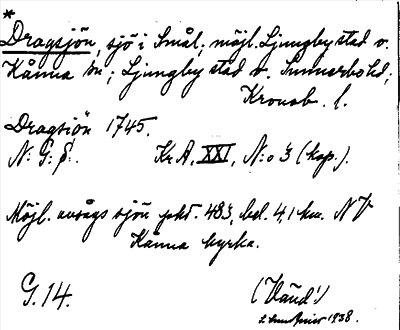 *
Dragsjön, sjö i Smål; möjl. Ljungby stad o.
Kånna sn; Ljungby stad o. Sunnerbo hd;
Kronob. l.
Dragsiön 1745.
N: G: S:. Kr A. XXI, N:o 3 (kop.).
Möjl. avsågs sjön pkt. 483, bel. 4,1 km. NV
Kånna kyrka.
G. 14.
1938.